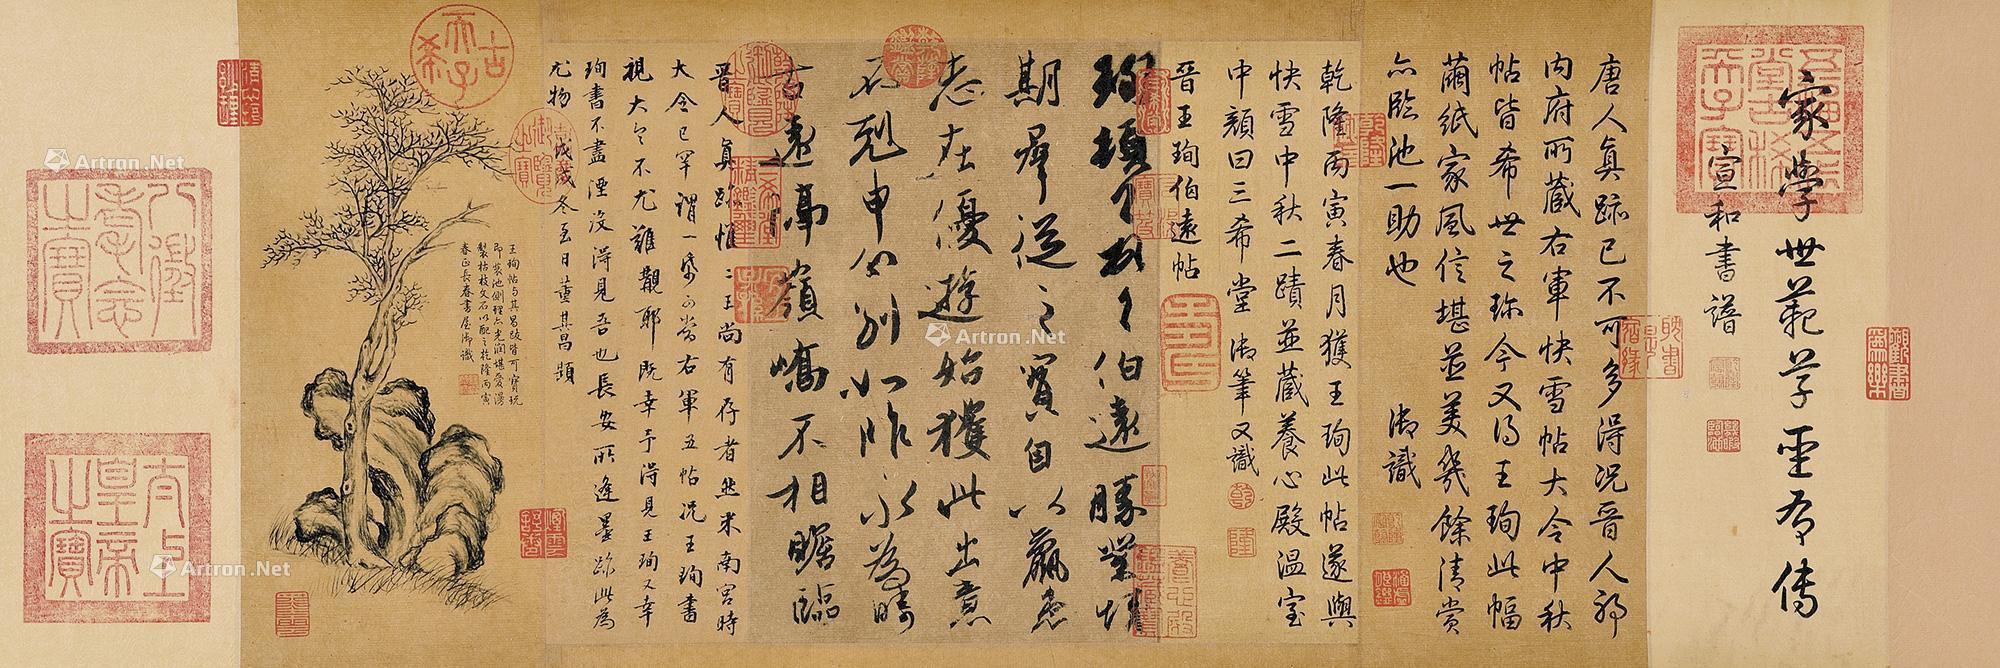 家學世範草聖有傳
宣和書譜
唐人真跡已不可多得況晉人耶
內府所藏右軍快雪帖大令中秋
帖皆希世之珍今又得王珣此幅
繭紙家風信堪並美幾餘清賞
亦臨池一助也 御識
乾隆丙寅春月獲王珣此帖遂與
快雪中秋二蹟並藏養心殿溫室
中顏曰三希堂 御筆又識
晉王珣伯遠帖
珣頓首頓首伯遠勝業情
期群從之寶自以羸患
志在優遊始獲此出意
不剋申分別如昨永為疇
古遠隔嶺嶠不相瞻臨
晉人真跡惟二王尚有存者然米南宮時
大令已罕謂一紙可當右軍五帖況王珣書
視大令不尤難覯耶既幸予得見王珣又幸
珣書不盡湮沒得見吾也長安所逢墨跡此為
尤物
戊戌冬至日董其昌題
王珣帖與其昌跋皆可寶玩
即裝池側理亦光潤堪愛漫
製枯枝文石以配之乾隆丙寅
春正長春書屋御識
古希天子
八徵耄念之寶
太上皇帝之寶
五福五代堂古稀天子寶
乾隆御覽之寶
三希堂
Artron.Net
Artron.Net
Artron.Net
Artron.Net
Artron.Net
Artron.Net